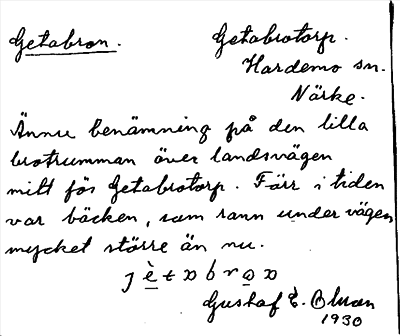 Getabron.
Getabrotorp.
Hardemo sn.
Närke.
Ännu benämning på den lilla
brotrumman över landsvägen
mitt för Getabrotorp. Färr i tiden
var bäcken, som rann under vägen
mycket större än nu.
Gustaf E.
1930